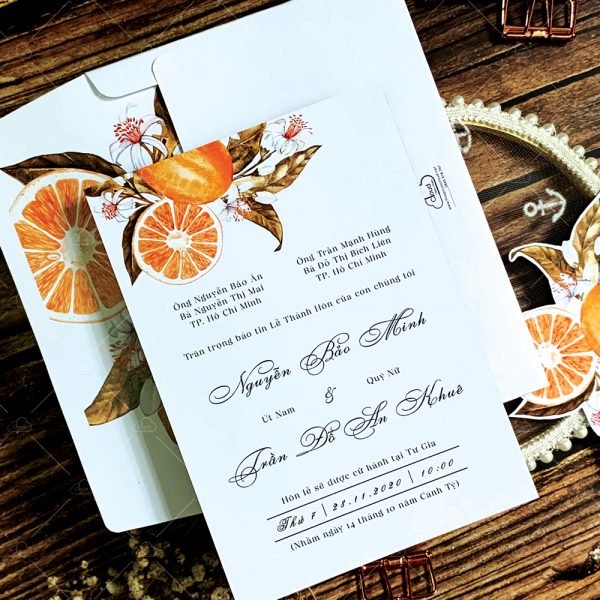 Ông Nguyễn Bảo Ân
Bà Nguyễn Thị Mai
TP. Hồ Chí Minh
Ông Trần Mạnh Hùng
Bà Đỗ Thị Bích Liên
TP. Hồ Chí Minh
Trân trọng báo tin Lễ Thành Hôn của con chúng tôi
Nguyễn Bảo Minh
Út Nam
&
Quý Nữ
Trần Đỗ An Khuê
Hôn lễ sẽ được cử hành tại Tư Gia
Thứ 7 | 28.11.2020 | 10:00
(Nhằm ngày 14 tháng 10 năm Canh Tý)